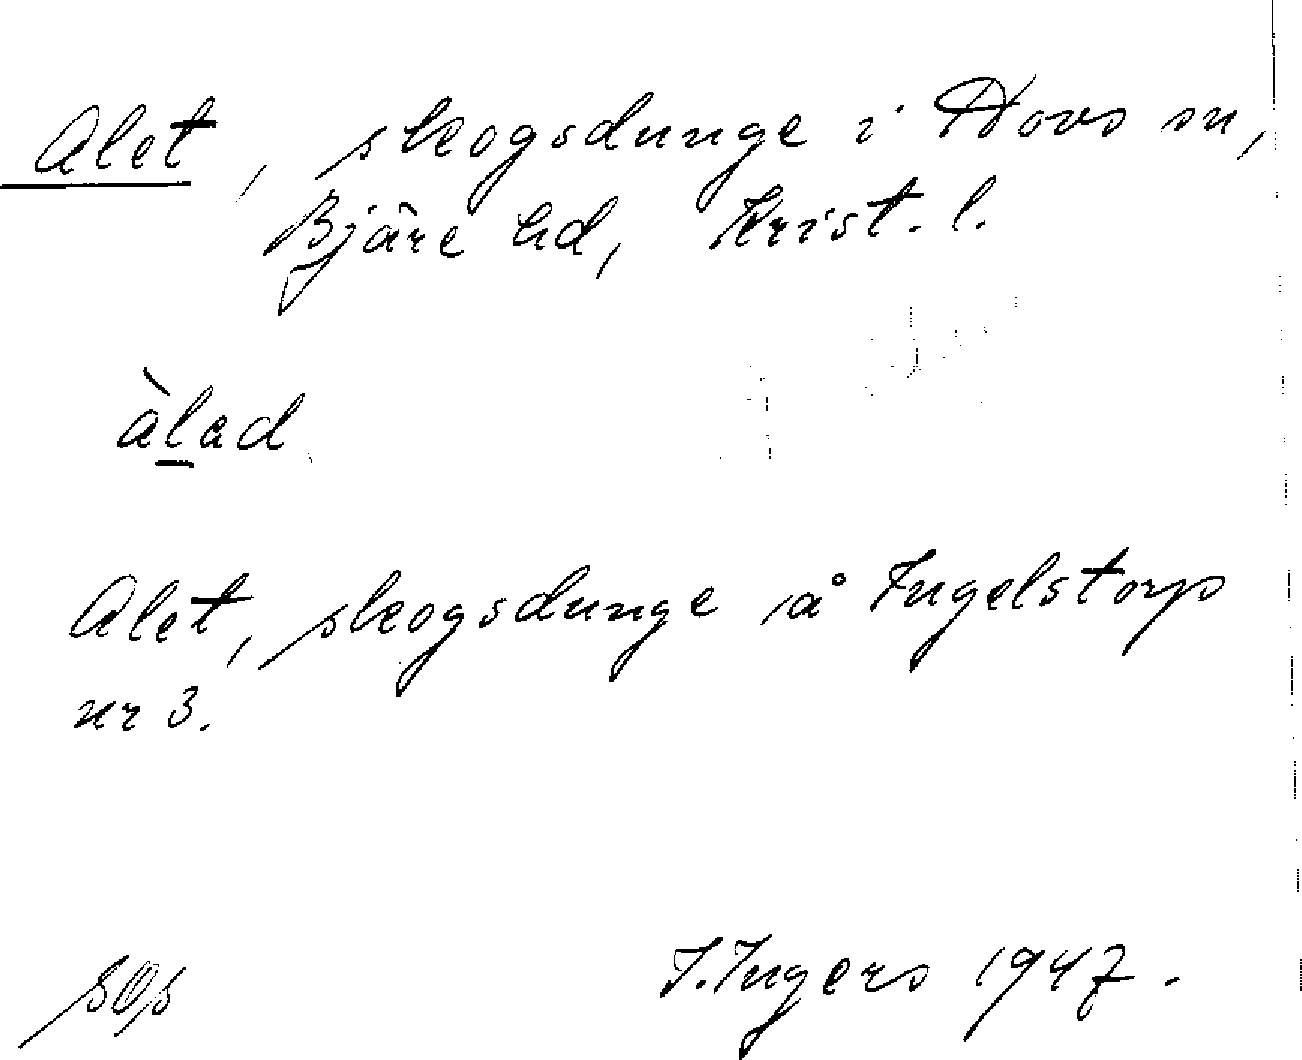 Alet, skogsdunge i Hovs sn,
Bjäre hd, Krist. l.
àlad
Alet, skogsdunge å Ingelstorp
nr 3.
I. Ingers 1947.